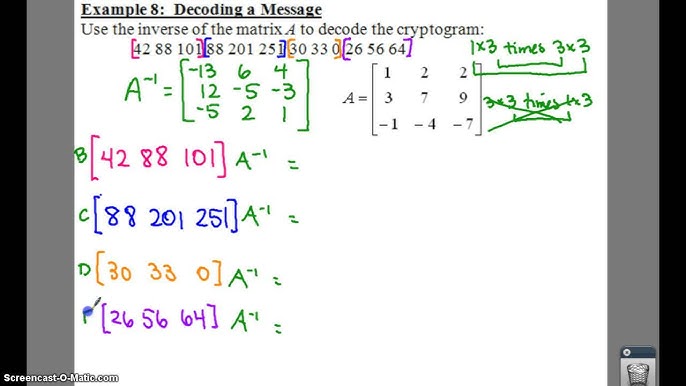 Example 8: Decoding a Message
Use the inverse of the matrix A to decode the cryptogram:
[42 88 101][88 201 251][30 33 0][26 56 64]
1×3 times 3×3
A⁻¹ = [-13 6 4
12 -5 -3
-5 2 1]
A = [1 2 2
3 7 9
-1 -4 -7]
3×3 times 1×3
B [42 88 101] A⁻¹ =
C [88 201 251] A⁻¹ =
D [30 33 0] A⁻¹ =
[26 56 64] A⁻¹ =
Screencast-O-Matic.com